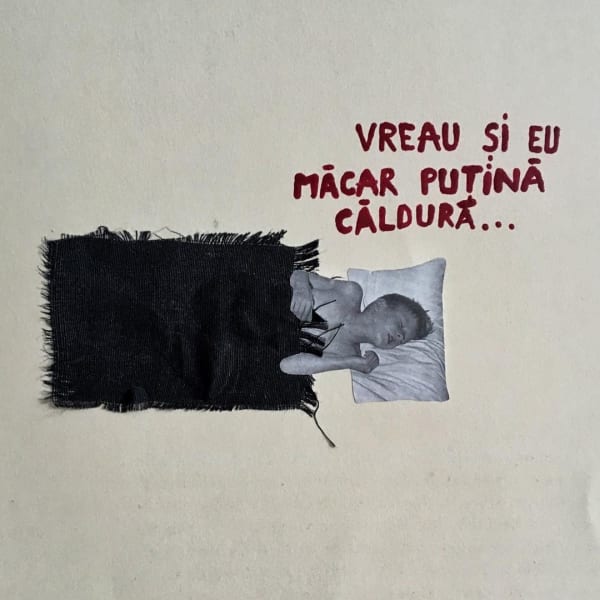 VREAU ȘI EU
MĂCAR PUȚINĂ
CĂLDURĂ...